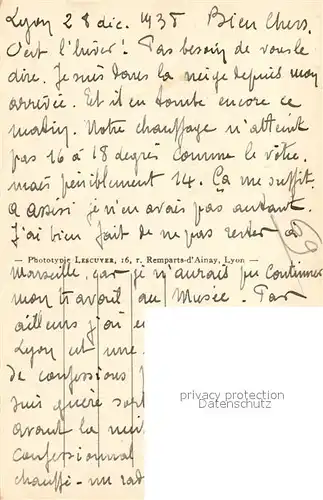 Lyon 28 dic. 1938 Bien Chers,
C'est l'hiver! Pas besoin de vous le
dire. Je suis dans la neige depuis mon
arrivée. Et il en tombe encore ce
matin. Notre chauffage n'atteint
pas 16 à 18 degrés comme le vôtre,
mais péniblement 14. Ça me suffit.
A Assisi je n'en avais pas autant.
J'ai bien fait de ne pas rester à
— Phototypie LESCUYER, 16, r. Remparts-d'Ainay, Lyon —
Marseille, car je n'aurais pu continuer
mon travail au Musée. Par
ailleurs j'ai e
Lyon est une
de confessions
suis guère sort
avant la nuit
confessionnal
chauffé - un rad
privacy protection
Datenschutz